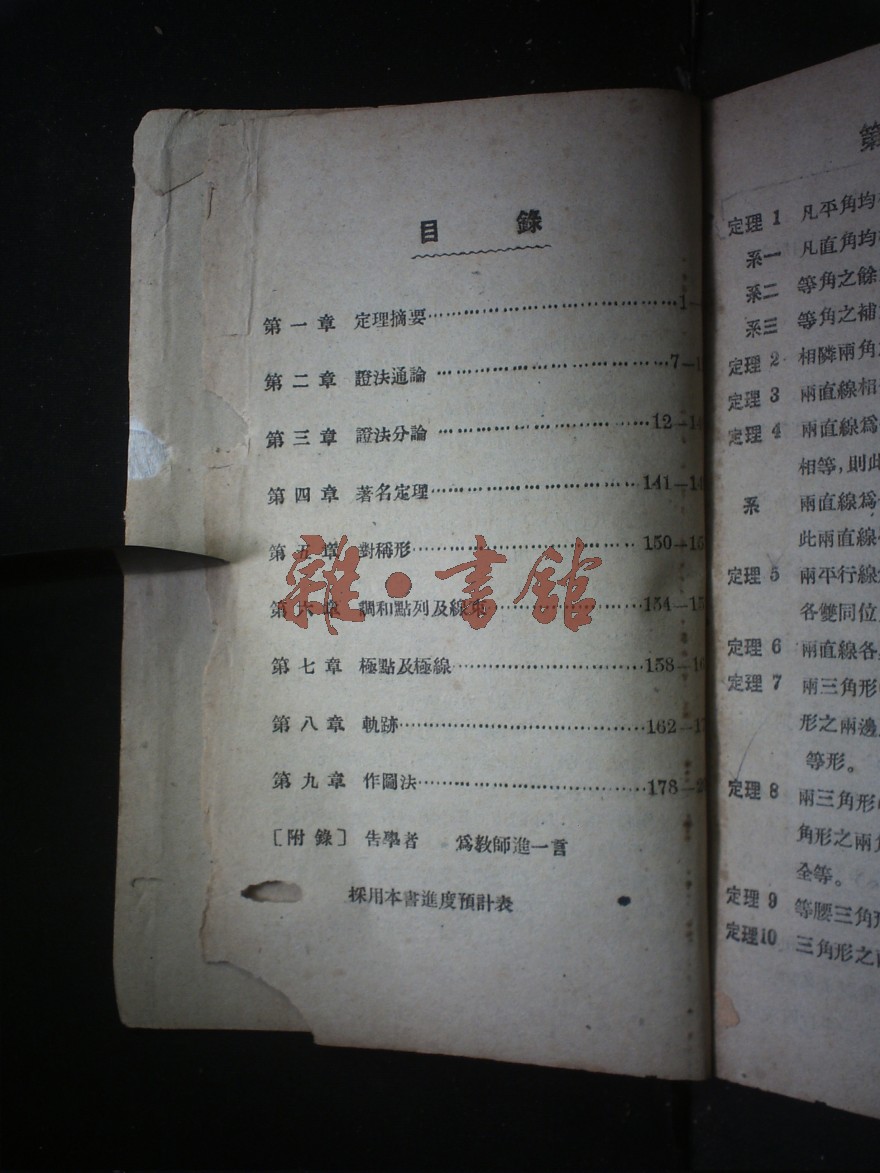 目 錄
第一章 定理摘要……………………………1—
第二章 證法通論……………………………7—1
第三章 證法分論……………………………12—14
第四章 著名定理……………………………141—14
第五章 對稱形……………………………150—15
第六章 調和點列及線束……………………………154—15
第七章 極點及極線……………………………158—16
第八章 軌跡……………………………162—17
第九章 作圖法……………………………178—2
〔附錄〕 告學者 爲教師進一言
採用本書進度預計表
雜·書館
第
定理 1 凡平角均
系一 凡直角均
系二 等角之餘
系三 等角之補
定理 2 相隣兩角
定理 3 兩直線相
定理 4 兩直線爲
相等,則此
系 兩直線爲
此兩直線
定理 5 兩平行線
各雙同位
定理 6 兩直線各
定理 7 兩三角形
形之兩邊
等形。
定理 8 兩三角形
角形之兩
全等。
定理 9 等腰三角形
定理10 三角形之